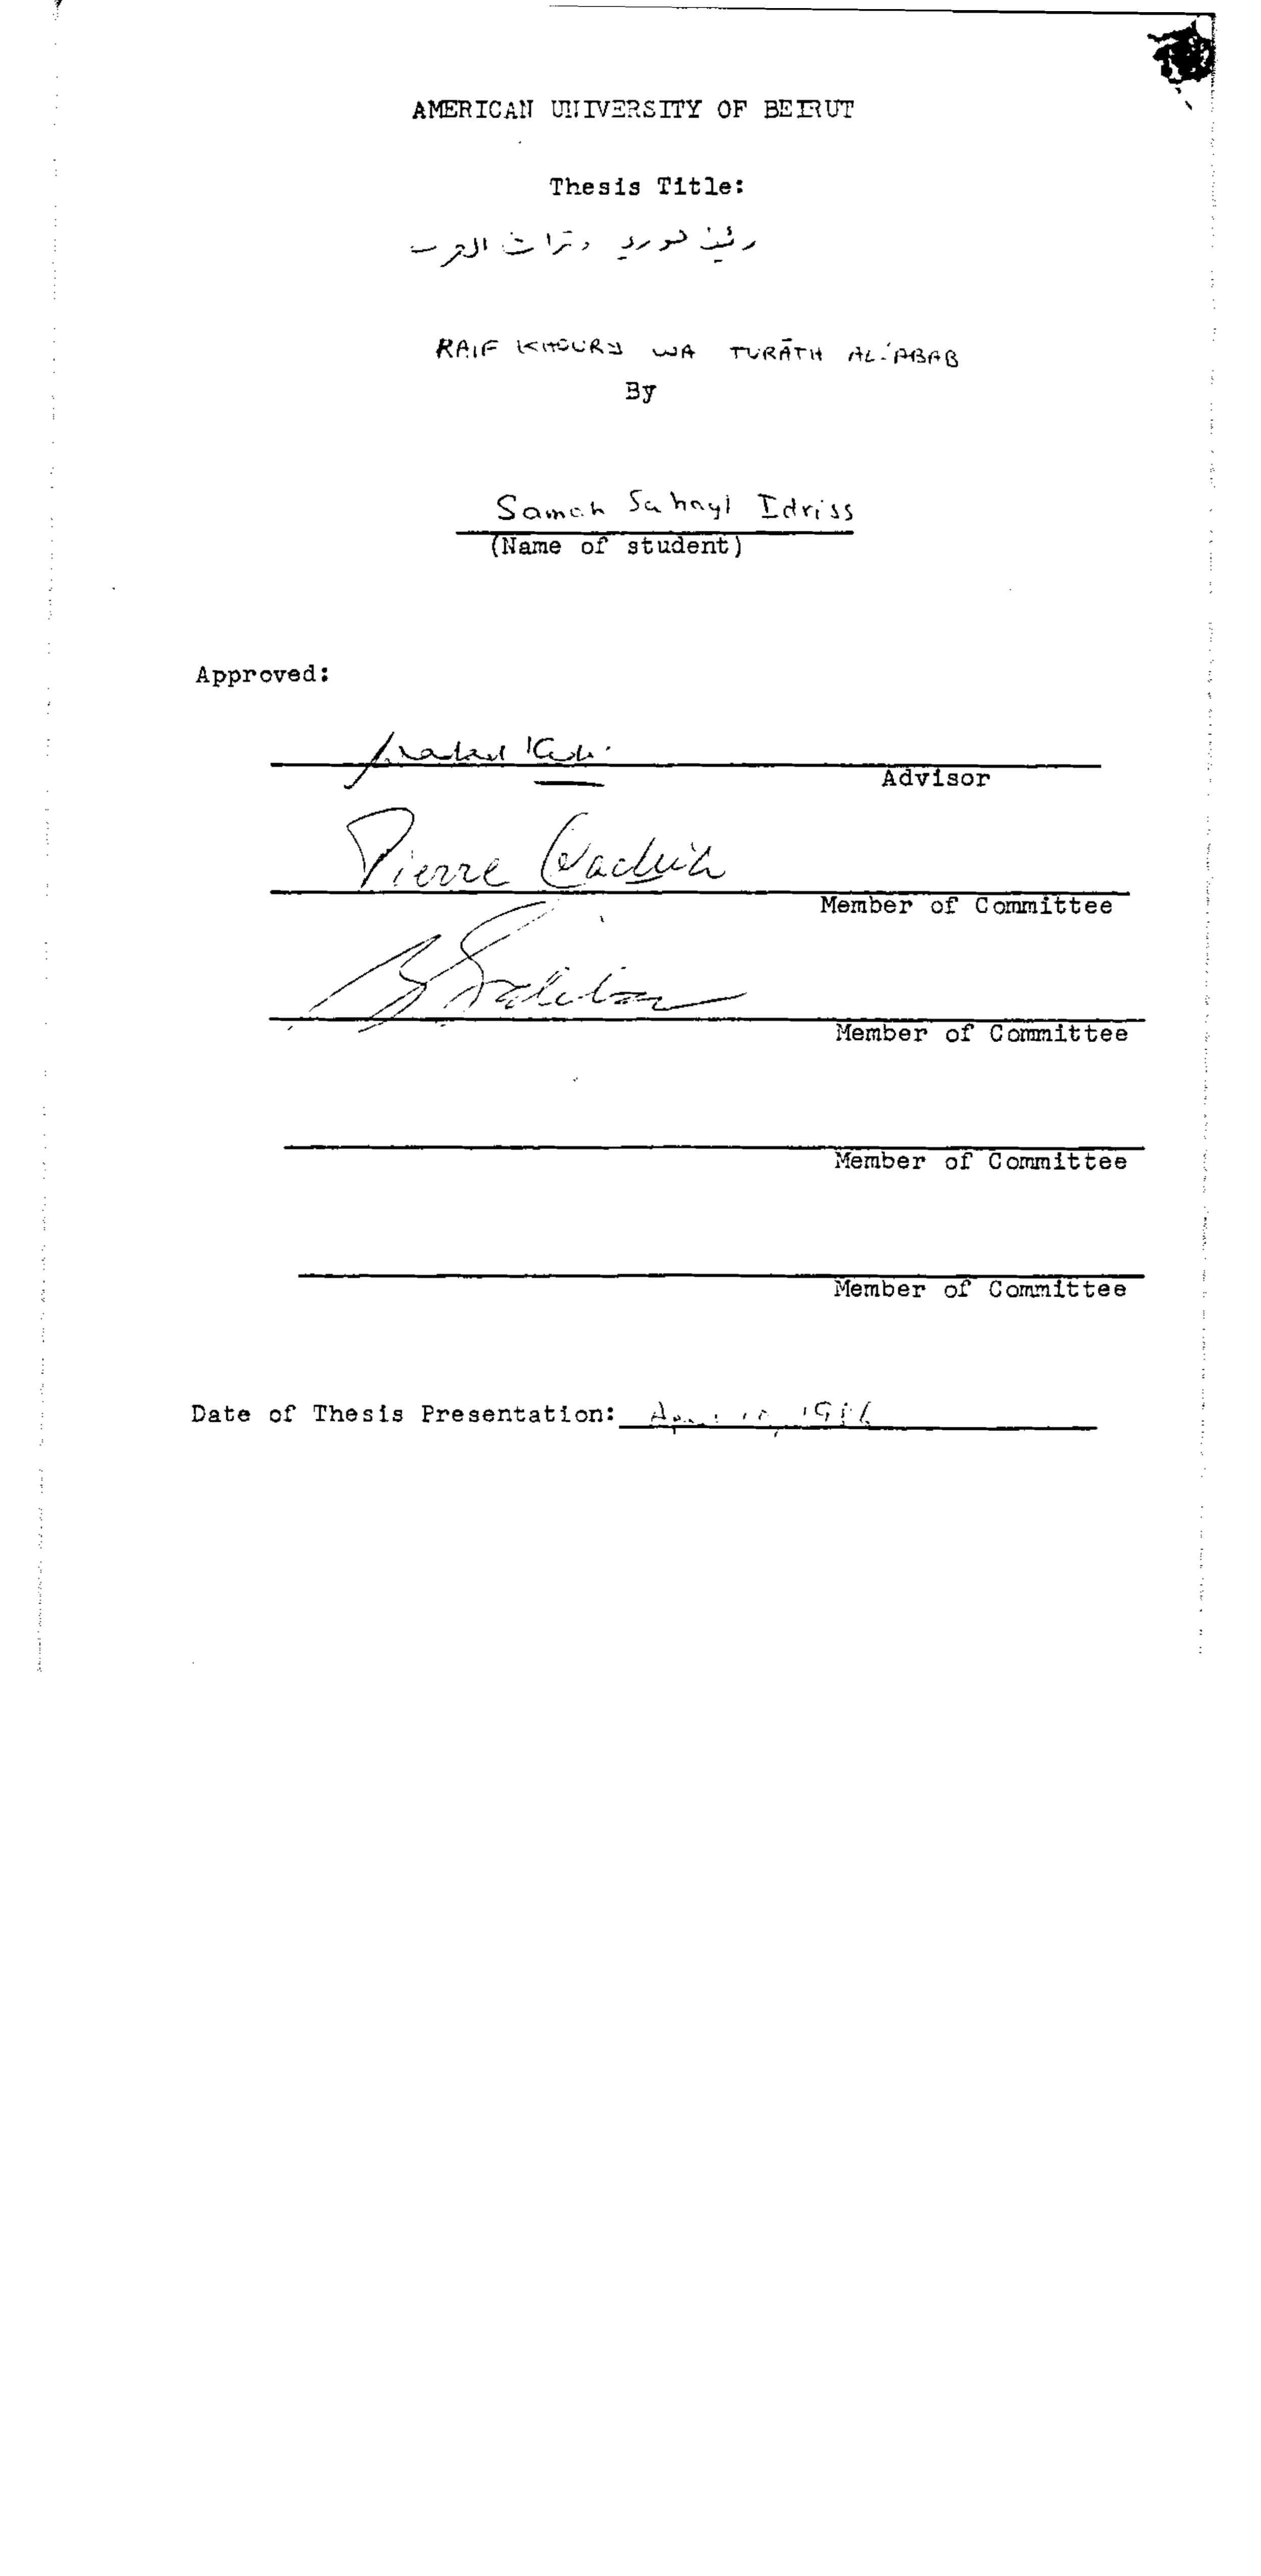 AMERICAN UNIVERSITY OF BEIRUT
Thesis Title:
رئيف خوري وتراث العرب
RAIF KHOURY WA TURĀTH AL-'ARAB
By
Samah Sahayl Idriss
(Name of student)
Approved:
Advisor
Pierre Cachia
Member of Committee
Member of Committee
Member of Committee
Member of Committee
Date of Thesis Presentation: